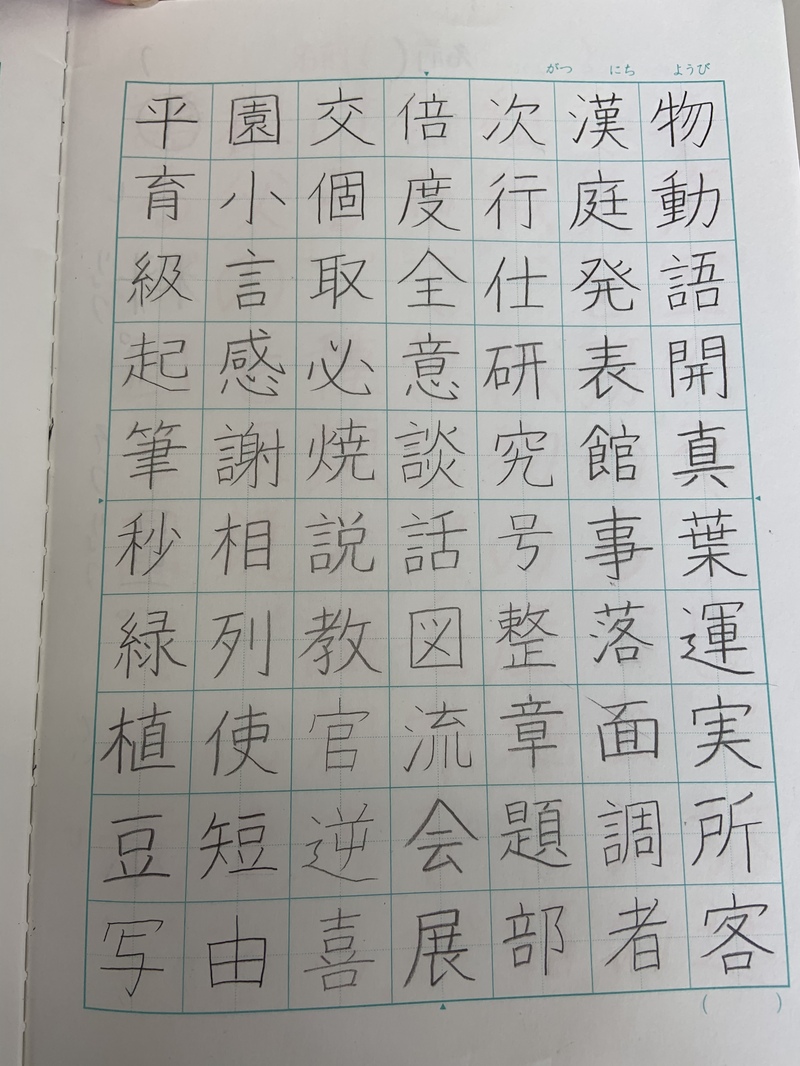 がつ にち ようび
物動語開真葉運実所客
漢庭発表館事落面調者
次行仕研究号整章題部
倍度全意談話図流会展
交個取必焼説教官逆喜
園小言感謝相列使短由
平育級起筆秒緑植豆写
( )